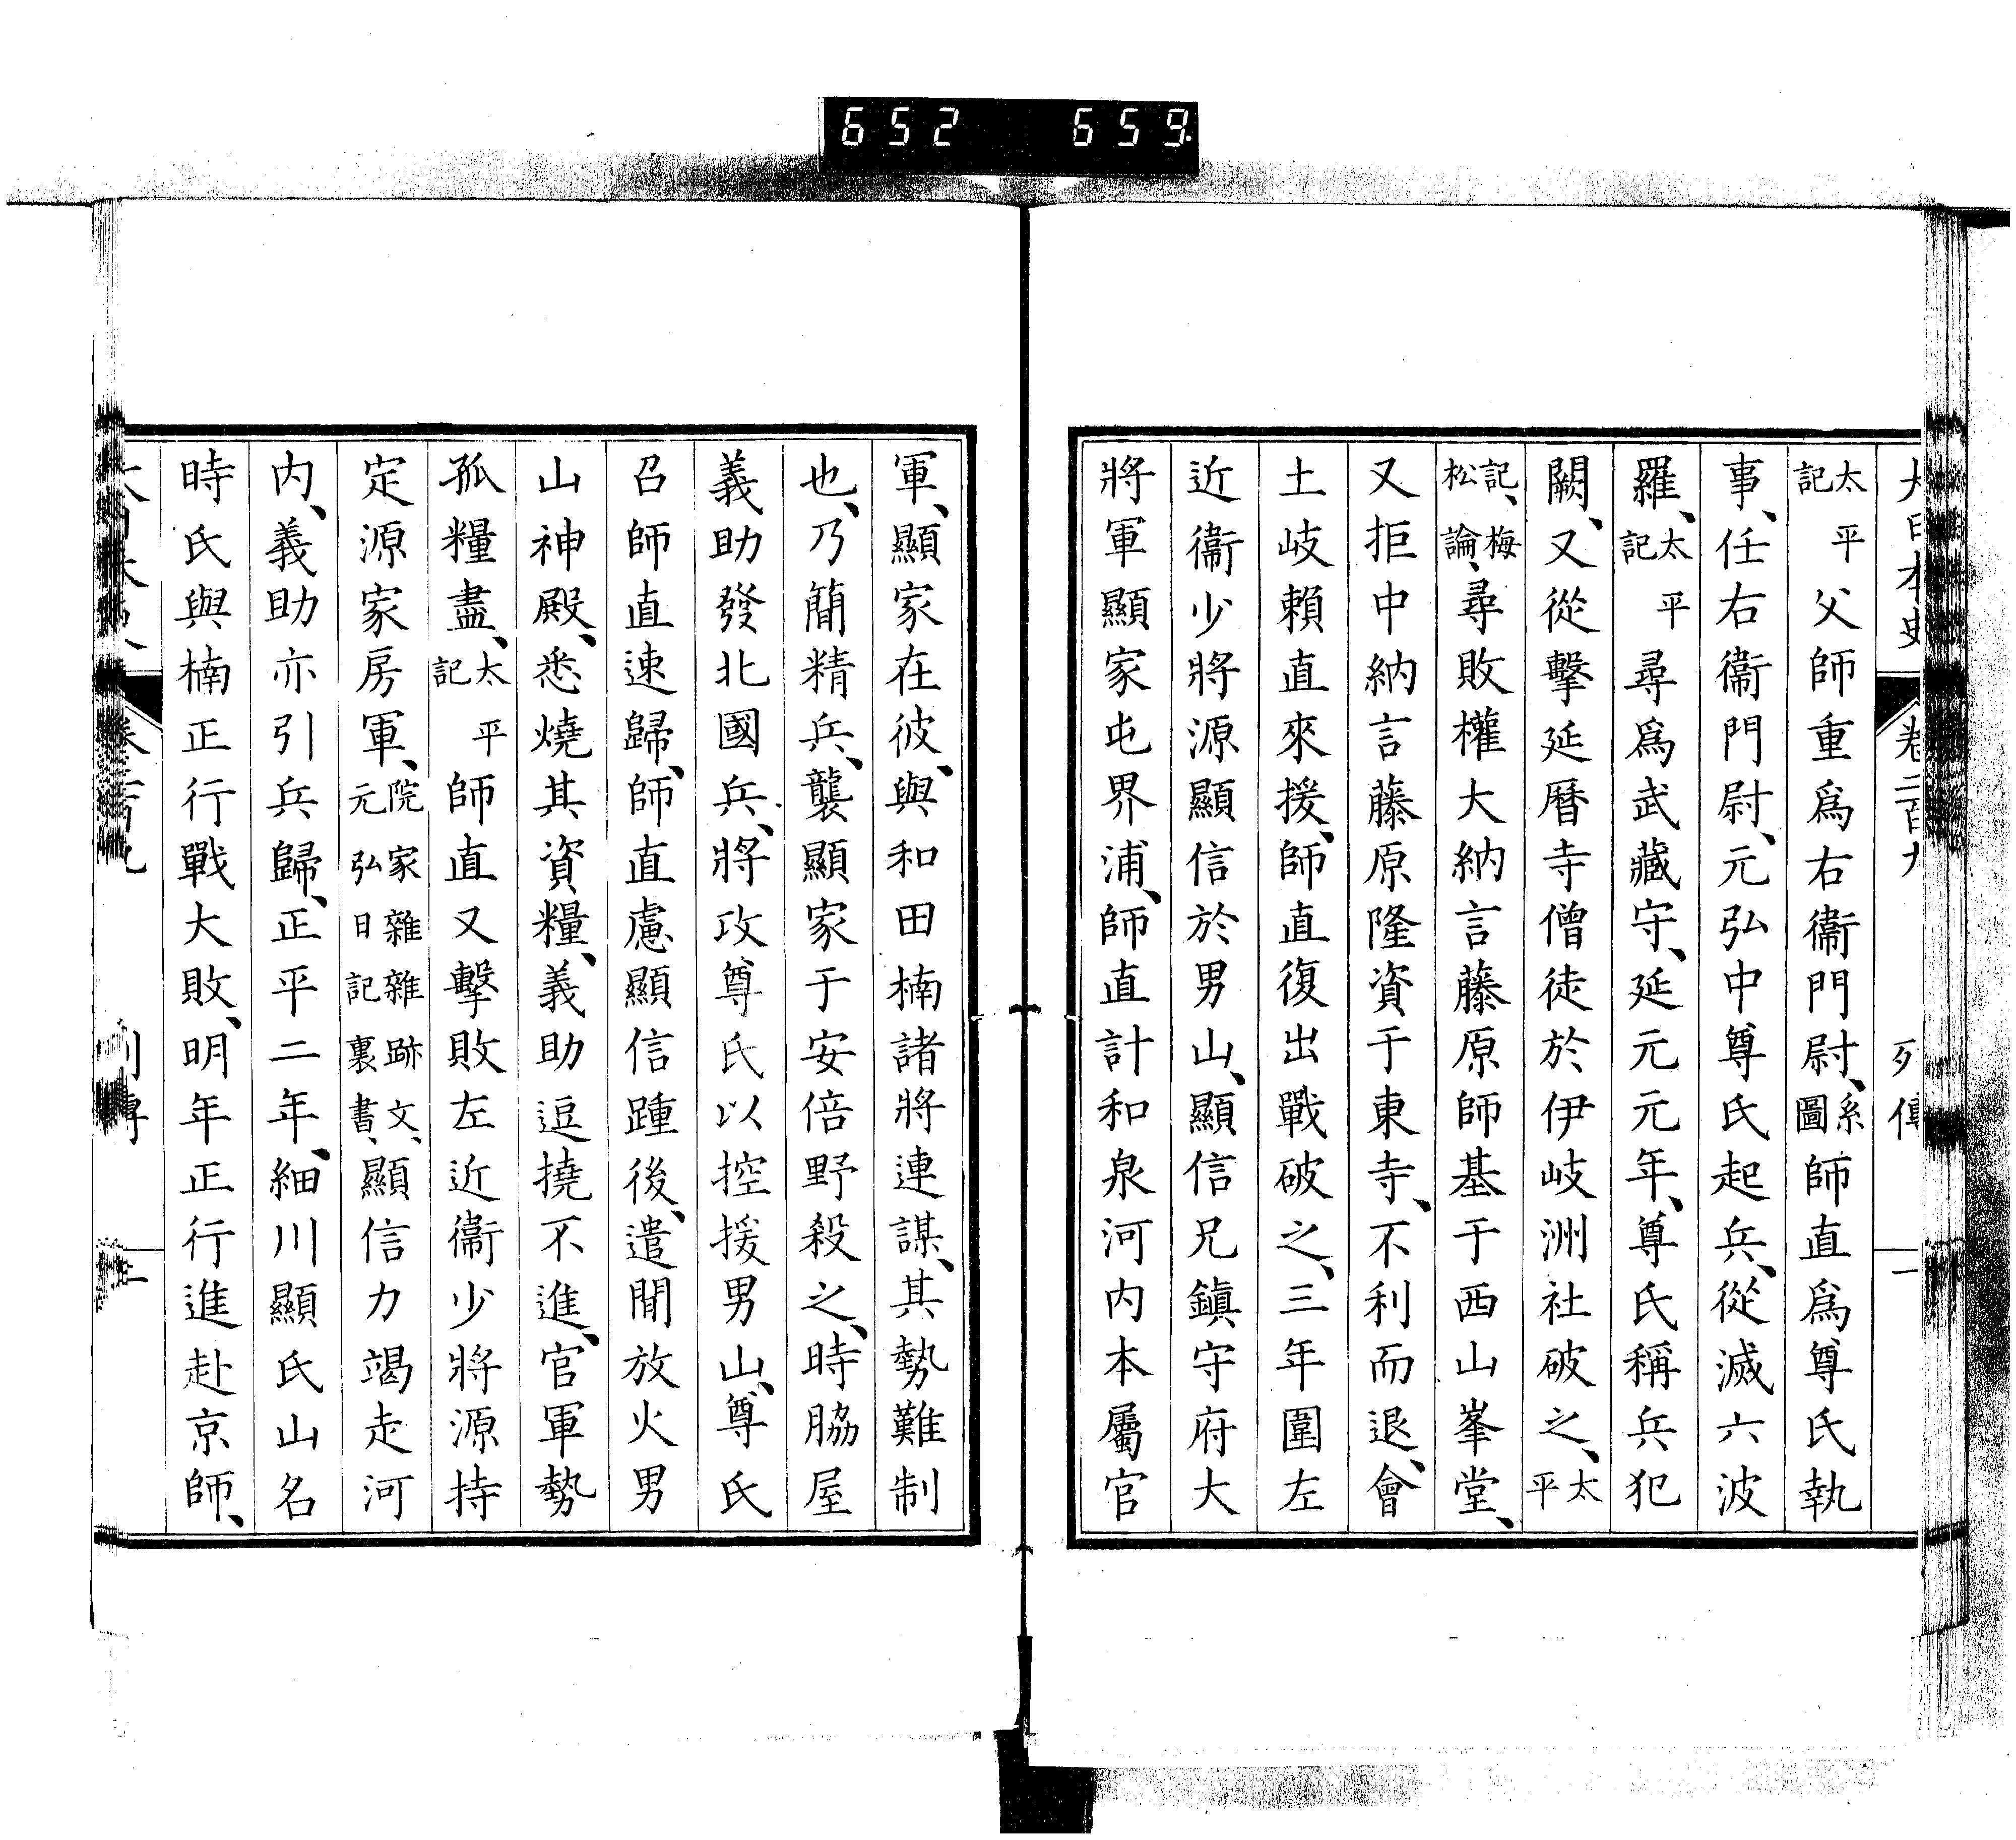 652 659
大日本史 卷二百九 列傳 一
太平記父師重爲右衞門尉、系圖師直爲尊氏執
事、任右衞門尉、元弘中尊氏起兵、從滅六波
羅、太平記尋爲武藏守、延元元年、尊氏稱兵犯
闕、又從擊延曆寺僧徒於伊岐洲社破之、太平
記、梅松論、尋敗權大納言藤原師基于西山峯堂、
又拒中納言藤原隆資于東寺、不利而退、會
土岐賴直來援、師直復出戰破之、三年圍左
近衞少將源顯信於男山、顯信兄鎭守府大
將軍顯家屯界浦、師直計和泉河内本屬官
軍、顯家在彼、與和田楠諸將連謀、其勢難制
也、乃簡精兵、襲顯家于安倍野殺之、時脇屋
義助發北國兵、將攻尊氏以控援男山、尊氏
召師直速歸、師直慮顯信踵後、遣閒放火男
山神殿、悉燒其資糧、義助逗撓不進、官軍勢
孤糧盡、太平記師直又擊敗左近衞少將源持
定源家房軍、院家雜雜跡文、元弘日記裏書、顯信力竭走河
内、義助亦引兵歸、正平二年、細川顯氏山名
時氏與楠正行戰大敗、明年正行進赴京師、